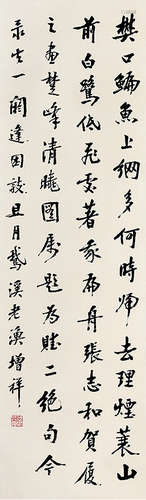 樊口鯿魚上網多何時歸去理煙蓑山
前白鷺低飛處著我扁舟張志和賀履
之畫楚峰清曉圖屬題為賦二絕句今
录其一閼逢困敦且月鵝溪老漁增祥